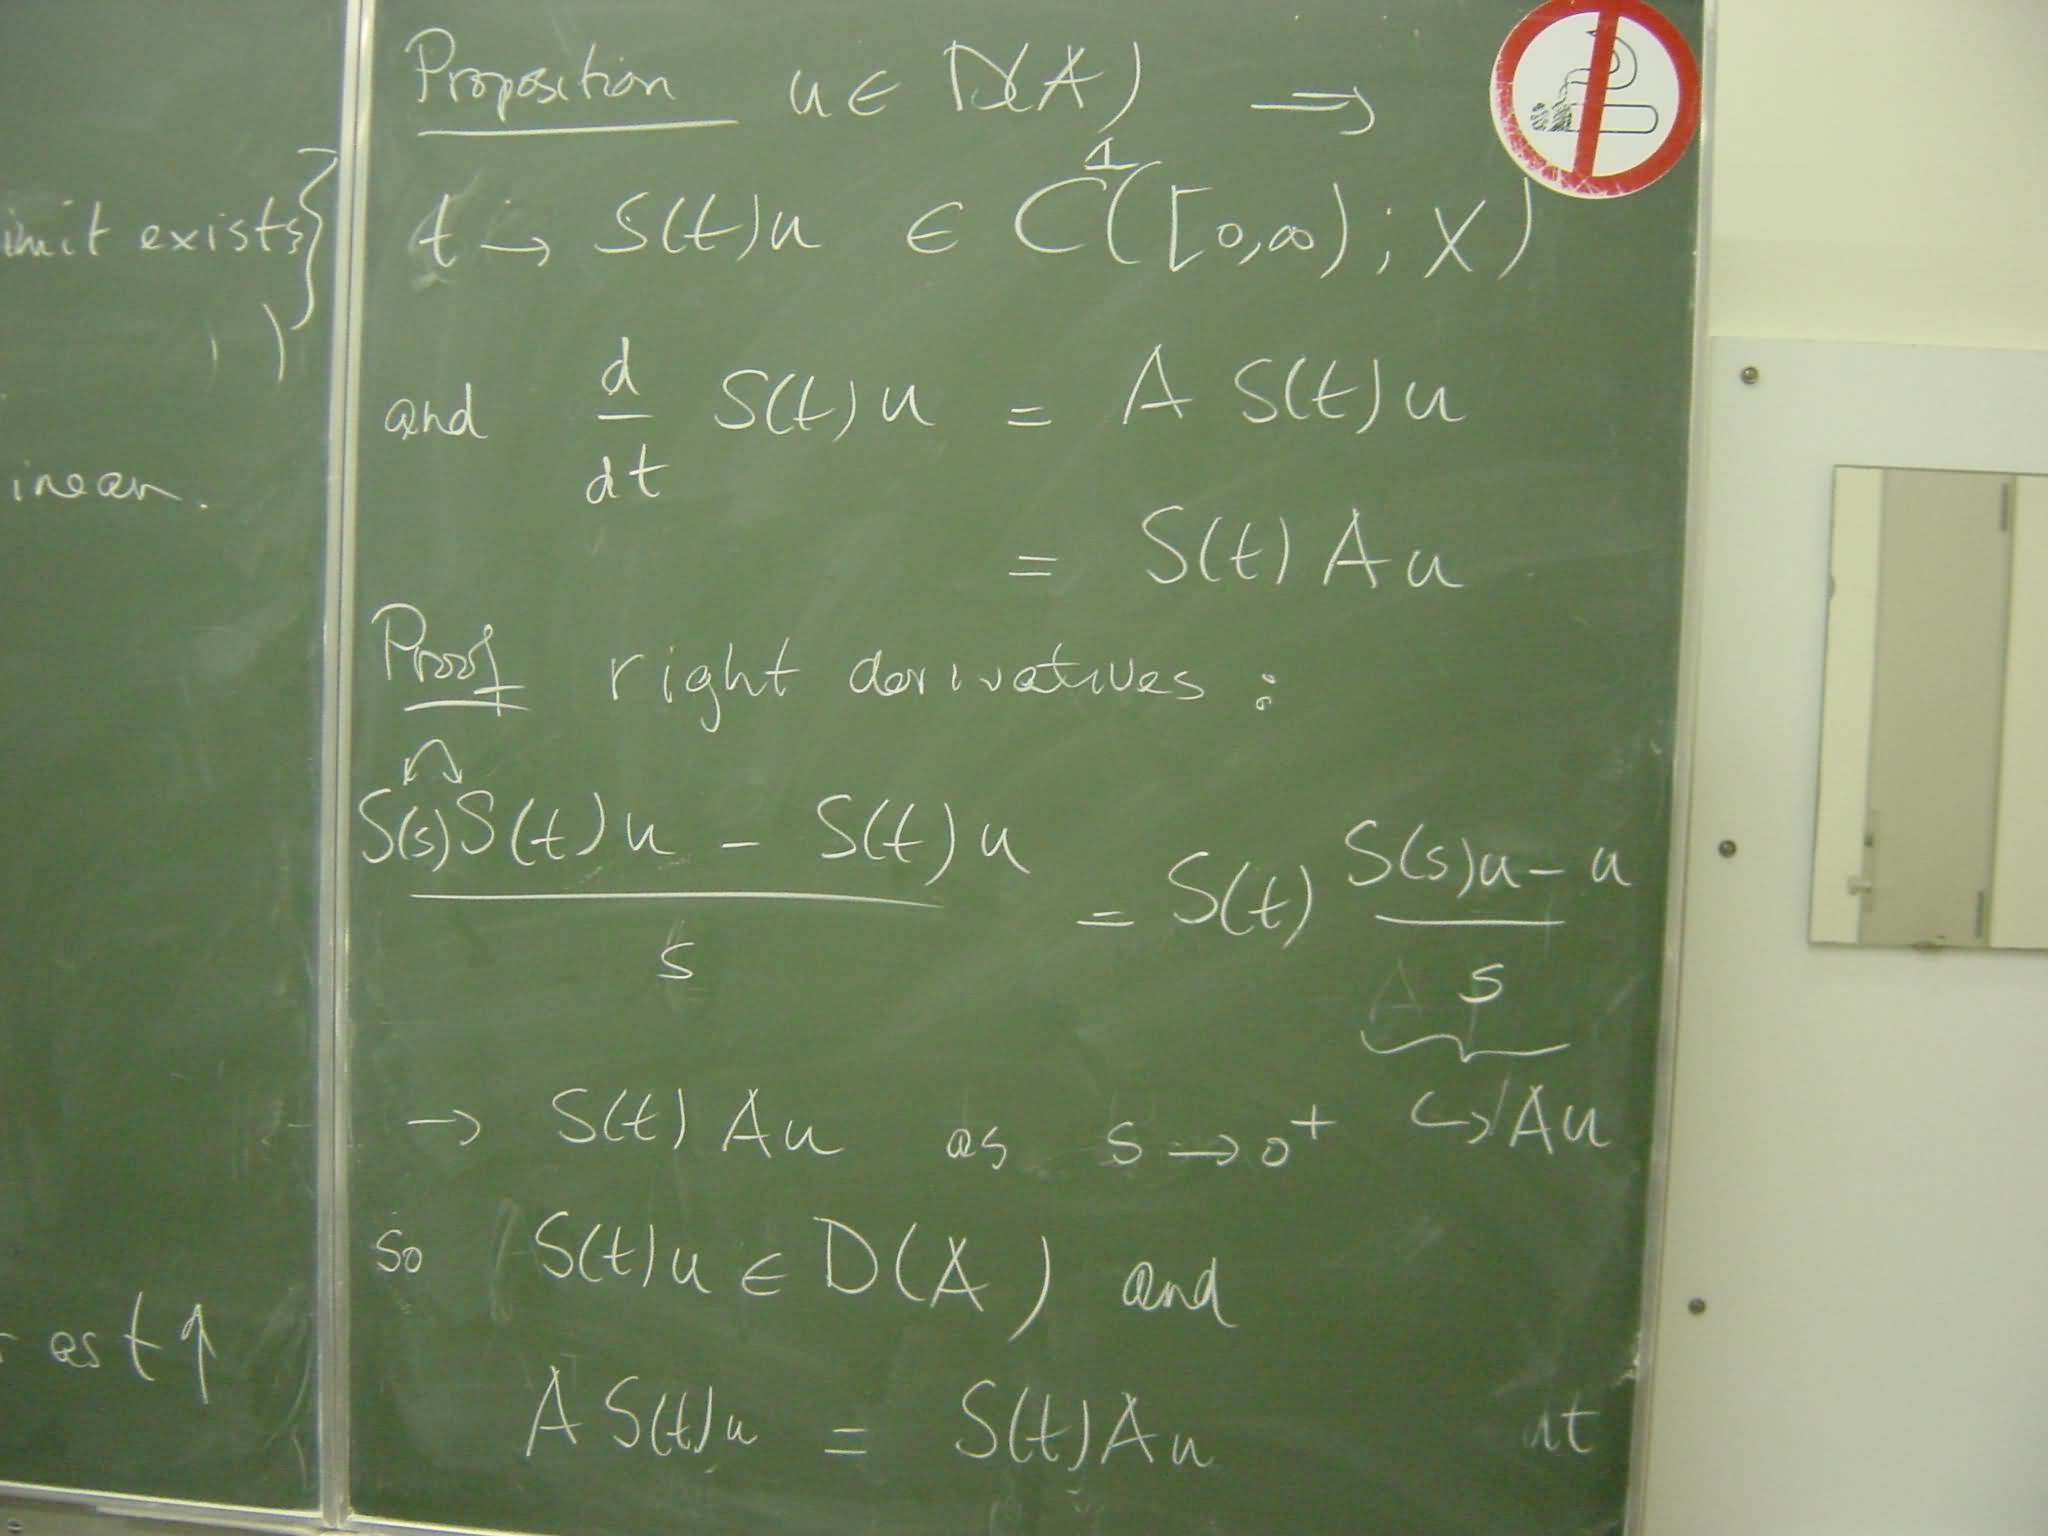 imit exists}
) )
inear.
as t ↑
Proposition u ∈ D(A) ⇒
t → S(t)u ∈ C¹([0,∞); X)
and d/dt S(t)u = A S(t)u
= S(t) A u
Proof right derivatives :
S(s)S(t)u - S(t)u / s = S(t) S(s)u - u / s
→ S(t) A u as s → 0⁺ ↪ Au
so S(t)u ∈ D(A) and
A S(t)u = S(t) A u